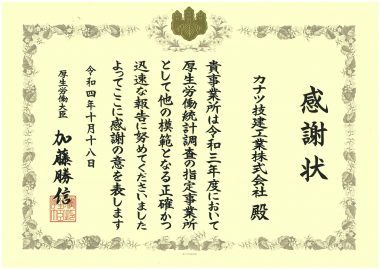 感謝状
カナツ技建工業株式会社 殿
貴事業所は令和三年度において
厚生労働統計調査の指定事業所
として他の模範となる正確かつ
迅速な報告に努めてくださいました
よってここに感謝の意を表します
令和四年十月十八日
厚生労働大臣 加藤勝信